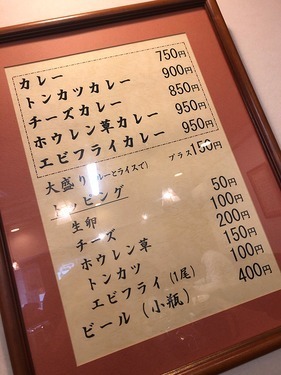 カレー 750円
トンカツカレー 900円
チーズカレー 850円
ホウレン草カレー 950円
エビフライカレー 950円
大盛り(ルーとライスで) プラス150円
トッピング
生卵 50円
チーズ 100円
ホウレン草 200円
トンカツ 150円
エビフライ(1尾) 100円
ビール(小瓶) 400円